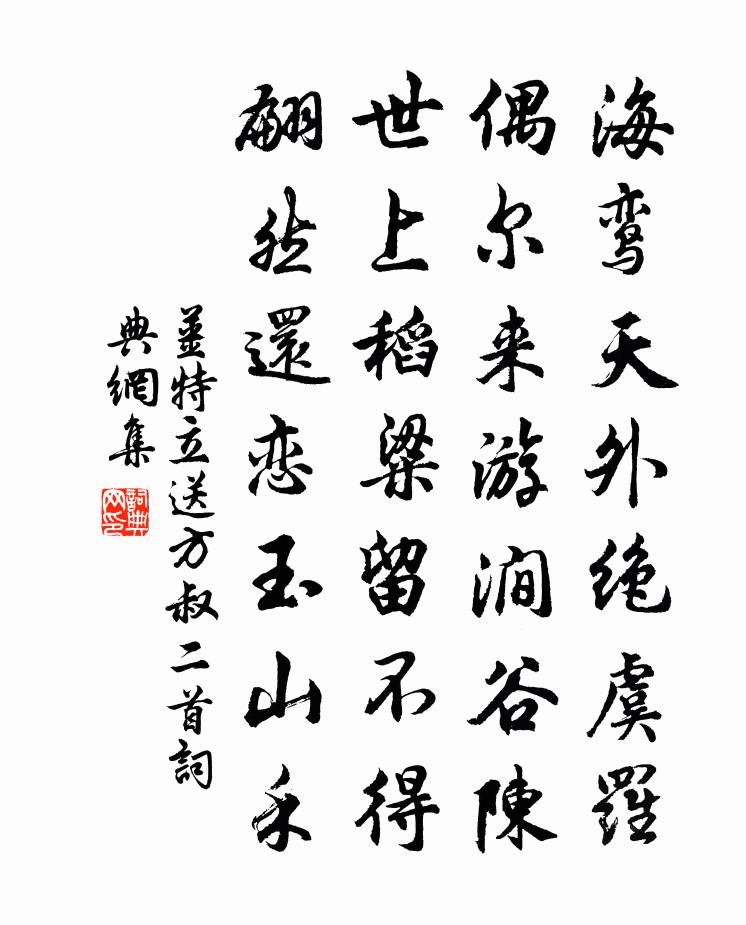 海鸾天外绝虞羅
偶尔来游涧谷陳
世上稻粱留不得
翩然還恋玉山禾
薑特立送方叔二首詞
典網集
詞典
网印